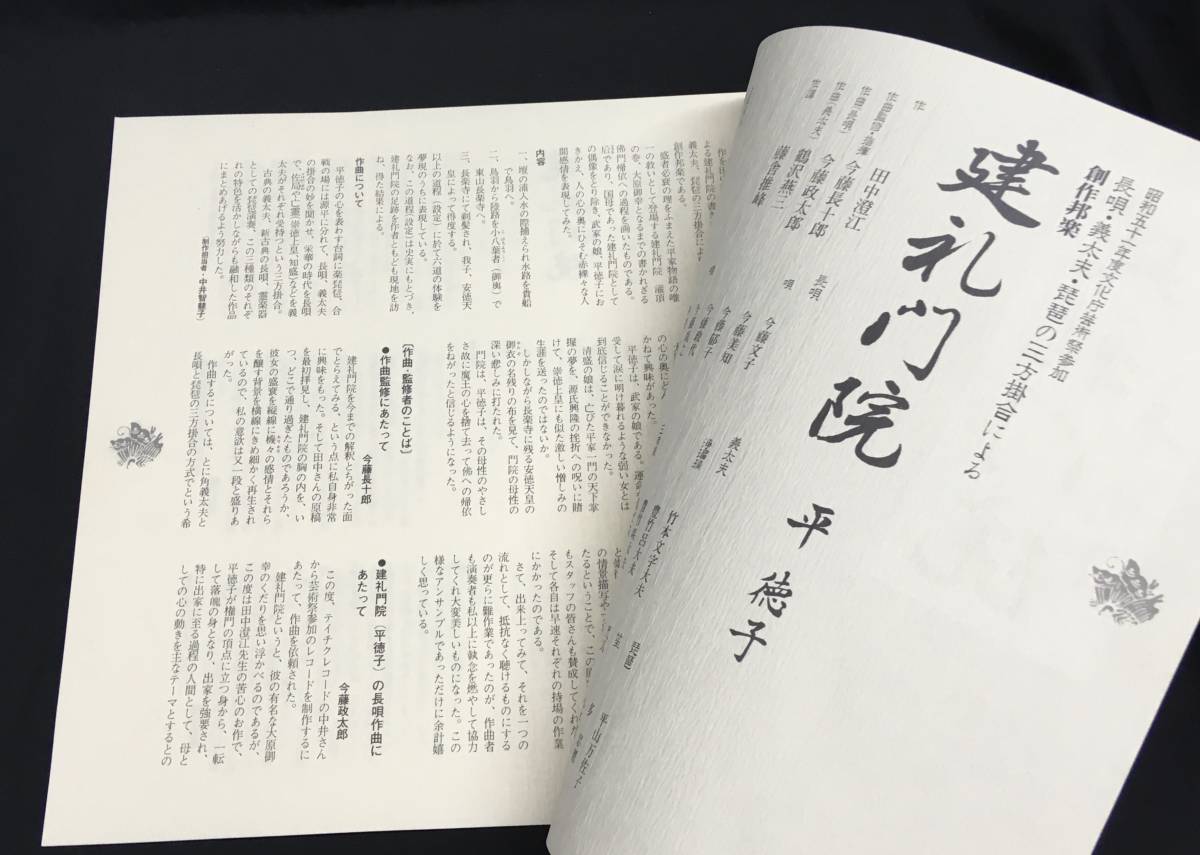 昭和五十一年度文化庁芸術祭参加
長唄・義太夫・琵琶の三方掛合による
創作邦楽
建礼門院 平徳子
作 田中澄江
作曲監修・指揮 今藤長十郎
作曲(長唄) 今藤政太郎
作曲(義太夫) 鶴沢燕三
作調 藤舎推峰
長唄
唄
今藤文子
今藤美知
今藤郁子
今藤政代
義太夫
浄瑠璃
竹本文字大夫
豊竹呂大夫
琵琶
平山万佐子
よる建礼門院の書き
義太夫、琵琶の三方掛合によ
創作邦楽である。
盛者必衰の理をふまえた平家物語の唯
一の救いとして登場する建礼門院 灌頂
の巻、大原御幸となるまでの書かれざる
佛門帰依への過程を画いたものである。
后であり、国母であった建礼門院として
の偶像をとり除き、武家の娘、平徳子にお
きかえ、人の心の奥にひそむ赤裸々な人
間感情を表現してみた。
内容
一、壇の浦入水の際捕えられ水路を貴船
で鳥羽へ。
二、鳥羽から陸路を小八葉者(御輿)で
東山長楽寺へ。
三、長楽寺にて剃髪され、我子、安徳天
皇によって得度する。
以上の道程(設定)に於て六道の体験を
夢現のうちに表現している。
なお、この道程(設定)は史実にもとづき、
建礼門院の足跡を作者ともども現地を訪
ね、得た結果による。
作曲について
平徳子の心を表わす台詞に薬琵琶、合
戦の場には源平に分れて、長唄、義太夫
の掛合の妙を聞かせ、栄華の時代を長唄
で、佐局や亡霊(崇徳上皇、知盛)などを義
太夫がそれぞれ受持つという三方掛合。
古典の義太夫、新古典の長唄、霊楽器
としての琵琶演奏、この三種類のそれぞ
れの特色を活かしながらも融和した作品
にまとめあげるよう努力した。
(制作担当者・中井智慧子)
の心の奥にと
かねて興味があった。
平徳子は、武家の娘である。運
受して涙に明け暮れるような弱い女とは
到底信じることができなかった。
清盛の娘は、亡びた平家一門の天下掌
握の夢を、源氏興隆の挫折への呪いに賭
けて、崇徳上皇にも似た激しい憎しみの
生涯を送ったのではないか。
しかしながら長楽寺に残る安徳天皇の
御衣の名残りの布を見て、門院の母性の
深い悲しみに打たれた。
門院は、平徳子は、その母性のやさし
さ故に魔王の心を捨て去って佛への帰依
をねがったと信じるようになった。
〔作曲・監修者のことば〕
●作曲監修にあたって
今藤長十郎
建礼門院を今までの解釈とちがった面
でとらえてみる、という点に私自身非常
に興味をもった。そして田中さんの原稿
を最初拝見し、建礼門院の胸の内を、い
つ、どこで通り過ぎたものであろうか、
彼女の盛衰を縦線に機々の感情とそれら
を醸す背景を横線にきめ細かく再生され
ているので、私の意欲は又一段と盛りあ
がった。
作曲するについては、とに角義太夫と
長唄と琵琶の三方掛合の方式でという希
の情景描写や
たるということで、この
もスタッフの皆さんも賛成してくれ
そして各自は早速それぞれの持場の作業
にかかったのである。
さて、出来上ってみて、それを一つの
流れとして、抵抗なく聴けるものにする
のが更らに難作業であったのが、作曲者
も演奏者も私以上に執念を燃やして協力
してくれ大変美しいものになった。この
様なアンサンブルであっただけに余計嬉
しく思っている。
●建礼門院(平徳子)の長唄作曲に
あたって
今藤政太郎
この度、テイチクレコードの中井さん
から芸術祭参加のレコードを制作するに
あたって、作曲を依頼された。
建礼門院というと、彼の有名な大原御
幸のくだりを思い浮かべるのであるが、
この度は田中澄江先生の苦心のお作で、
平徳子が権門の頂点に立つ身から、一転
して落魄の身となり、出家を強要され、
特に出家に至る過程の人間として、母と
しての心の動きを主なテーマとするとの